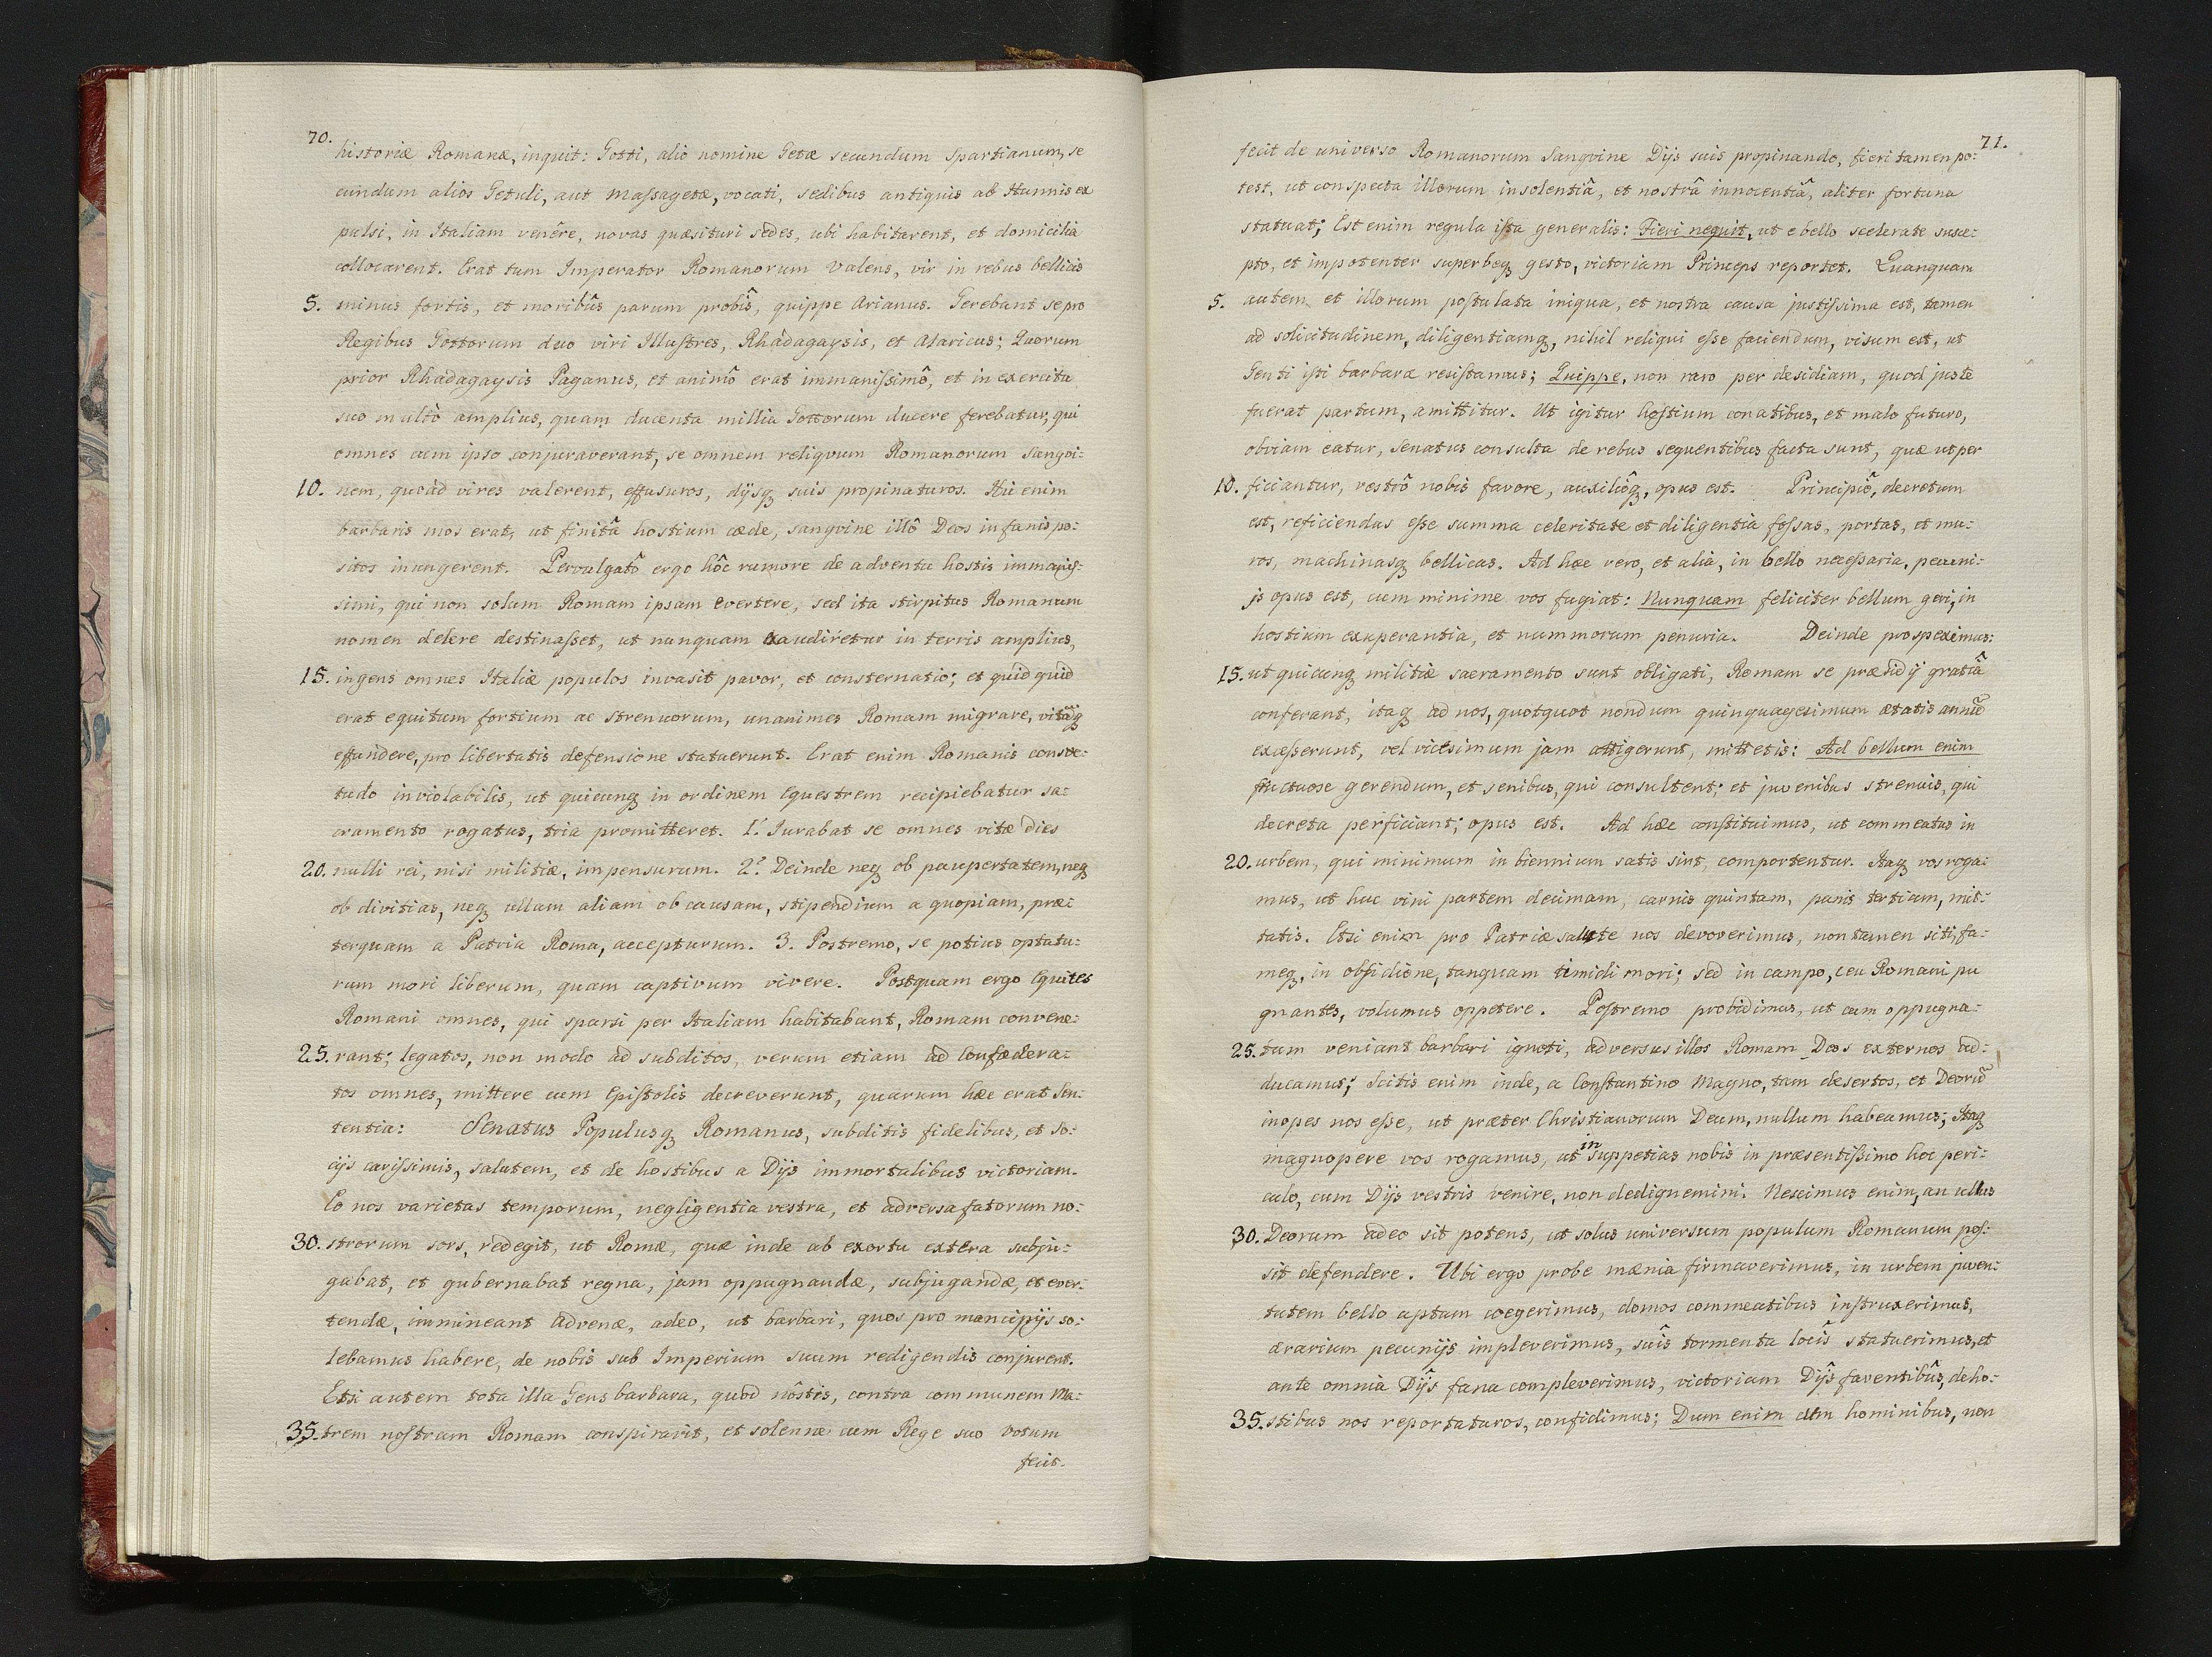 70.
historiæ Romanæ, inquit: Gotti, alio nomine Getæ secundum Spartianum, se
cundum alios Getuli, aut Massagetæ, vocati, sedibus antiquis ab Hunnis ex
pulsi, in Italiam venêre, novas quæsituri sedes, ubi habitarent, et domicilia
collocarent. Erat tum Imperator Romanorum Valens, vir in rebus bellicis
5. minus fortis, et moribûs parum probîs, quippe Arianus. Gerebant se pro
Regibus Gottorum duo viri Illustres, Rhadagaysis, et Alaricus; Quorum
prior Rhadagaysis Paganus, et animô erat immanissimô, et in exercitu
suo multò amplius, quam ducenta millia Gottorum ducere ferebatur, qui
omnes cum ipso conjuraverant, se omnem reliqvum Romanorum Sangvi-
10. nem, quoad vires valerent, effusuros, dijsq suis propinaturos. Hic enim
barbaris mos erat, ut finitâ hostium cæde, sangvine illô Deos in fanis po-
sitos inungerent. Pervulgatô ergo hôc rumore de adventu hostis immanis-
simi, qui non solum Romam ipsam evertere, sed ita stirpitus Romanum
nomen delere destinasset, ut nunquam exaudiretur in terris amplius,
15. ingens omnes Italiæ populos invasit pavor, et consternatio; et quid quid
erat equitum fortium ac strenuorum, unanimes Romam migrare, vitãq
effundere, pro libertatis defensione statuerunt. Erat enim Romanis consve-
tudo inviolabilis, ut quicunq in ordinem Equestrem recipiebatur sa-
cramento rogatus, tria promitteret. 1.° Jurabat se omnes vitæ dies
20. nulli rei, nisi militiæ, impensurum. 2.° Deinde neq ob paupertatem, neq
ob divitias, neq ullam aliam ob causam, stipendium a quopiam, præ-
terquam a Patria Roma, accepturum. 3. Postremo, se potius optatu-
rum mori liberum, quam captivum vivere. Postquam ergo Equites
Romani omnes, qui sparsi per Italiam habitabant, Romam convene-
25. rant; legatos, non modo ad subditos, verum etiam ad Confædera-
tos omnes, mittere cum Epistolis decreverunt, quarum hæc erat Sen-
tentia: Senatus Populusq Romanus, subditis fidelibus, et so-
cijs carissimis, salutem, et de hostibus a Dijs immortalibus victoriam.
Eo nos varietas temporum, negligentia vestra, et adversa fatorum no-
30. strorum sors, redegit, ut Romæ, quæ inde ab exortu extera subju-
gabat, et gubernabat regna, jam oppugnandæ, subjugandæ, et ever-
tendæ, immineant advenæ, adeo, ut barbari, quos pro mancipijs so-
lebamus habere, de nobis sub Imperium suum redigendis conjurent.
Etsi autem tota illa Gens barbara, quod nôstis, contra communem Ma-
35. trem nostram Romam conspiravit, et solenne cum Rege suo votum
fecit.
71.
fecit de universo Romanorum Sangvine Dijs suis propinando, fieri tamen po-
test, ut conspecta illorum insolentiâ, et nostrâ innocentiâ, aliter fortuna
statuat; Est enim regula ista generalis: Fieri nequit, ut e bello scelerate susce-
pto, et impotenter superbeq gesto, victoriam Princeps reportet. Quanquam
5. autem et illorum postulata iniqua, et nostra causa justissima est, tamen
ad solicitudinem, diligentiamq, nihil reliqui esse faciendum, visum est, ut
Genti isti barbaræ resistamus; Quippe, non raro per desidiam, quod juste
fuerat partum, amittitur. Ut igitur hostium conatibus, et malo futuro,
obviam eatur, Senatus consulta de rebus sequentibus facta sunt, quæ ut per
10. ficiantur, vestrô nobis favore, auxiliôq, opus est. Principiô, decretum
est, reficiendas esse summa celeritate et diligentia fossas, portas, et mu-
ros, machinasq bellicas. Ad hæc vero, et alia, in bello necessaria, pecuni-
js opus est, cum minime vos fugiat: Nunquam feliciter bellum geri, in
hostium exuperantia, et nummorum penuria. Deinde prospeximus:
15. ut quicunq militiæ sacramento sunt obligati, Romam se præsidij gratiâ
conferant, itaq ad nos, quotquot nondum quinquagesimum ætatis annũ
excesserunt, vel vicesimum jam attigerunt, mittetis: Ad bellum enim
fructuose gerendum, et senibus, qui consultent; et juvenibus strenuis, qui
decreta perficiant; opus est. Ad hæc constituimus, ut commeatus in
20. urbem, qui minimum in biennium satis sint, comportentur. Itaq vos roga-
mus, ut huc vini partem decimam, carnis quintam, panis tertiam, mit-
tatis. Etsi enim pro Patriæ salute nos devoverimus, non tamen siti, fa-
meq, in obsidione, tanquam timidi mori; sed in campo, ceu Romani pu
gnantes, volumus oppetere. Postremo probidimus, ut cum oppugna-
25. tum veniant barbari igneti, adversus illos Romam Deos externos ad-
ducamus; Scitis enim inde, a Constantino Magno, tam desertos, et Deorũ
inopes nos esse, ut præter Christianorum Deum, nullum habeamus; Itaq
magnopere vos rogamus, ut in suppetias nobis in præsentissimo hoc peri-
culo, cum Dijs vestris venire, non dedignemini. Nescimus enim, an ullus
30. Deorum adeo sit potens, ut solus universum populum Romanum pos-
sit defendere. Ubi ergo probe mænia firmaverimus, in urbem juven-
tutem bello aptam coegerimus, domos commeatibus instruxerimus,
ærarium pecunijs impleverimus, suîs tormenta locîs statuerimus, et
ante omnia Dijs fana compleverimus, victoriam Dijs faventibûs, de ho-
35. stibus nos reportaturos, confidimus; Dum enim cum hominibus, non